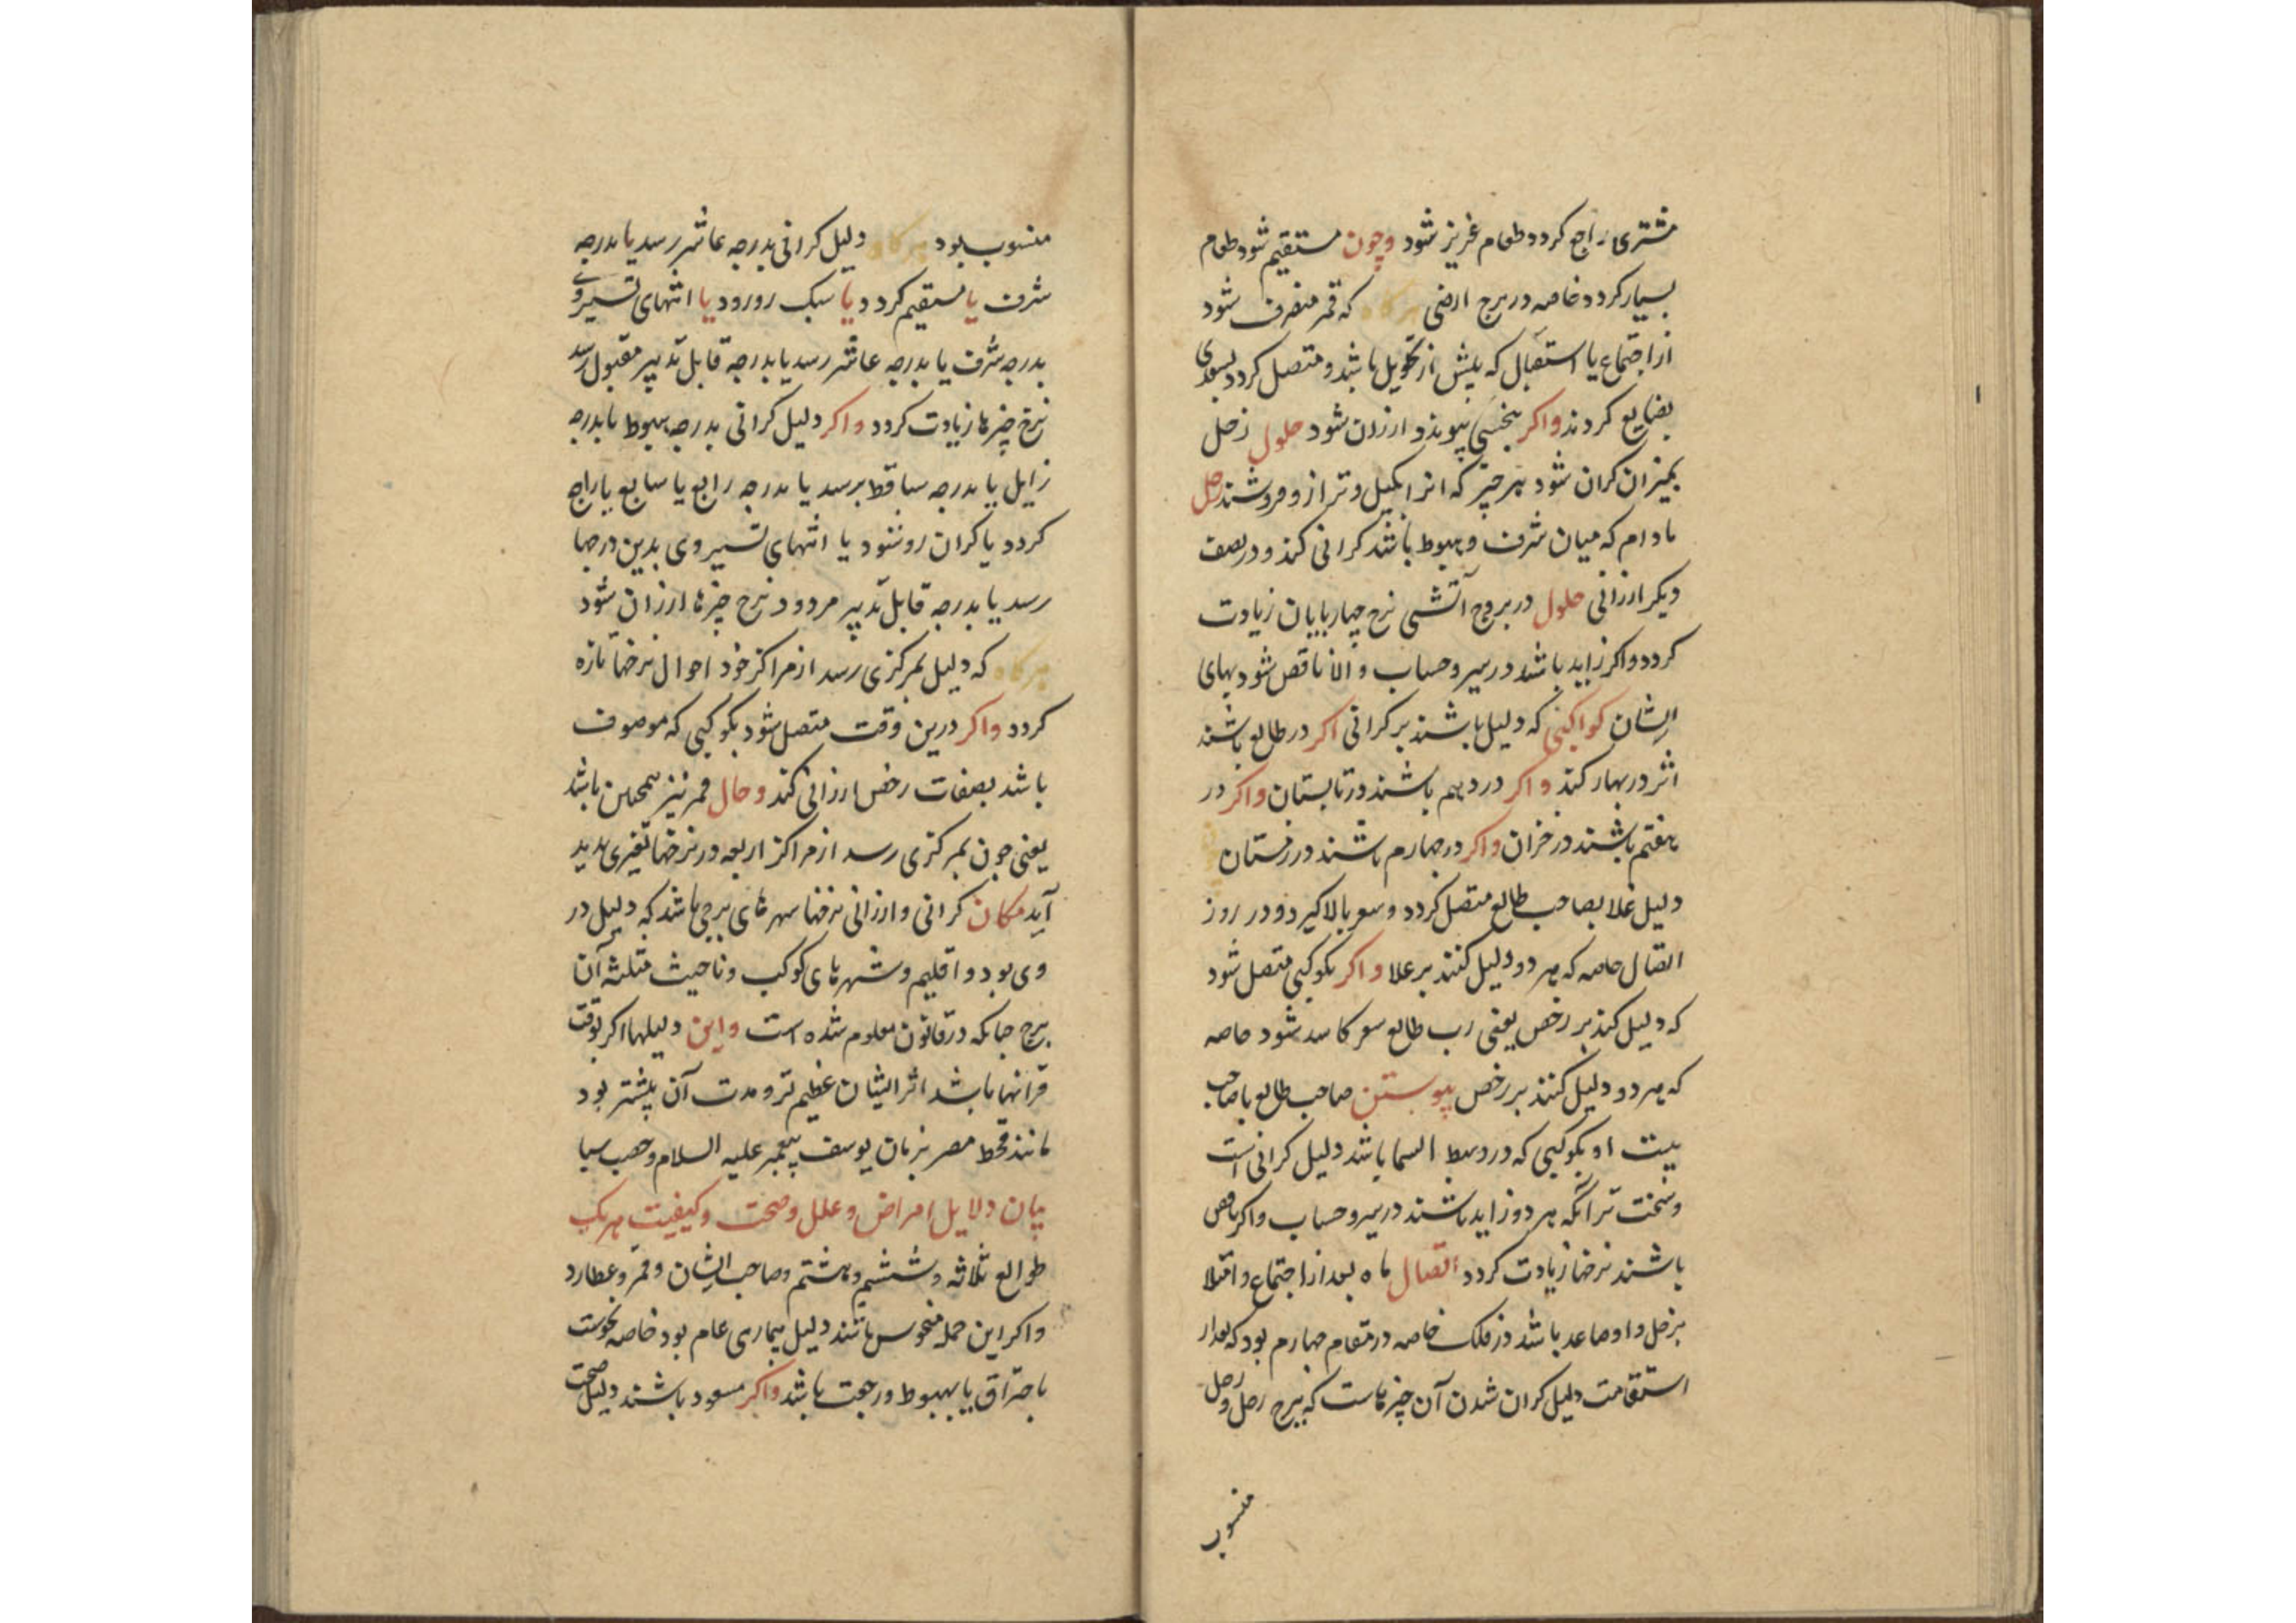 مشتری راجع کردد طعام عزیز شود وچون مستقیم شود طعام
بسیار کردد خاصه در برج ارضی هرکاه که قمر منصرف شود
از اجتماع یا استقبال که پیش از تحویل باشد و متصل کردد بسعدی
بضایع کردند واکر بنحسی پیوندد ارزان شود حلول زحل
بمیزان کران شود هر چیز که انرا بکیل و ترازو فروشند زحل
مادام که میان شرف و هبوط باشد کرانی کند و در نصف
دیکر ارزانی حلول در بروج آتشی نرخ چهارپایان زیادت
کردد واکر زاید باشد در سیر وحساب و الا ناقص شود بهای
ایشان کواکبی که دلیل باشند بر کرانی اکر در طالع باشند
اثر در بهار کند واکر در دهم باشند در تابستان واکر در
هفتم باشند در خزان واکر در چهارم باشند در زمستان
دلیل غلا بصاحب طالع متصل کردد وسعر بالا کیرد و در روز
اتصال خاصه که هر دو دلیل کنند بر غلا واکر بکوکبی متصل شود
که دلیل کند بر رخص یعنی رب طالع سعر کاسد شود خاصه
که هر دو دلیل کنند بر رخص پیوستن صاحب طالع با صاحب
بیت او بکوکبی که در وسط السما باشد دلیل کرانی است
وسخت تر آنکه هر دو زاید باشند در سیر وحساب واکر ناقص
باشند نرخها زیادت کردد اتصال ماه بعد از اجتماع و امتلا
بزحل و او صاعد باشد در فلک خاصه در مقام چهارم بود که بعد از
استقامت دلیل کران شدن آن چیزهاست که ببرج زحل و زحل
منسوب
منسوب بود هرکاه دلیل کرانی بدرجه عاشر رسد یا بدرجه
شرف یا مستقیم کردد و یا سبک رو رود یا انتهای تسییر وی
بدرجه شرف یا بدرجه عاشر رسد یا بدرجة قابل تدبیر مقبول رسد
نرخ چیزها زیادت کردد واکر دلیل کرانی بدرجه هبوط یا بدرجه
زایل یا بدرجه ساقط برسد یا بدرجه رابع یا سابع یا راجع
کردد یا کران رو شود یا انتهای تسییر وی بدین درجها
رسد یا بدرجه قابل تدبیر مردود نرخ چیزها ارزان شود
هرکاه که دلیل بمرکزی رسد از مراکز خود احوال نرخها تازه
کردد واکر درین وقت متصل شود بکوکبی که موصوف
باشد بصفات رخص ارزانی کند وحال قمر نیز همچنین باشد
یعنی چون بمرکزی رسد از مراکز اربعه در نرخها تغیری پدید
آید مکان کرانی و ارزانی نرخها شهرهای برجی باشد که دلیل در
وی بود و اقلیم و شهرهای کوکب و ناحیت مثلثه آن
برج چنانکه در قانون معلوم شده است واین دلیلها اکر بوقت
قرانها باشد اثر ایشان عظیم تر و مدت آن بیشتر بود
مانند قحط مصر بزمان یوسف پیغمبر علیه السلام وخصب سبا
بیان دلایل امراض و علل وصحت و کیفیت هر یک
طوالع ثلاثه و ششم و هشتم وصاحب ایشان و قمر و عطارد
واکر این جمله منحوس باشند دلیل بیماری عام بود خاصه نحوست
باحتراق یا بهبوط و رجعت باشد واکر مسعود باشند دلیل صحت